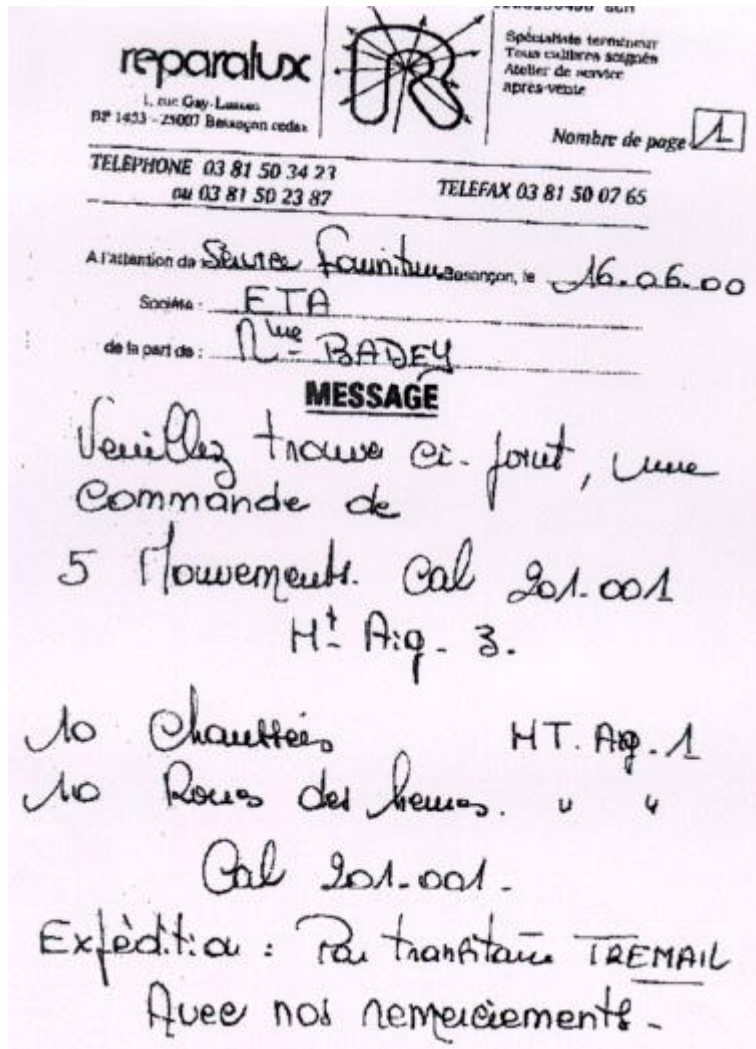 reparalux
1, rue Gay-Lussac
BP 1453 - 25007 Besançon cedex
R
Spécialiste termineur
Tous calibres soignés
Atelier de service
après-vente
Nombre de page 1
TELEPHONE 03 81 50 34 23
ou 03 81 50 23 87
TELEFAX 03 81 50 07 65
A l'attention de Service fournitures Besançon, le 16.06.00
Société : ETA
de la part de : Mme BADEY
MESSAGE
Veuillez trouver ci-joint, une
Commande de
5 Mouvements. Cal 201.001
Ht Aig. 3.
10 Chaussées HT. Aig. 1
10 Roues des heures. " "
Cal 201.001.
Expédition : Par transitaire TREMAIL
Avec nos remerciements.